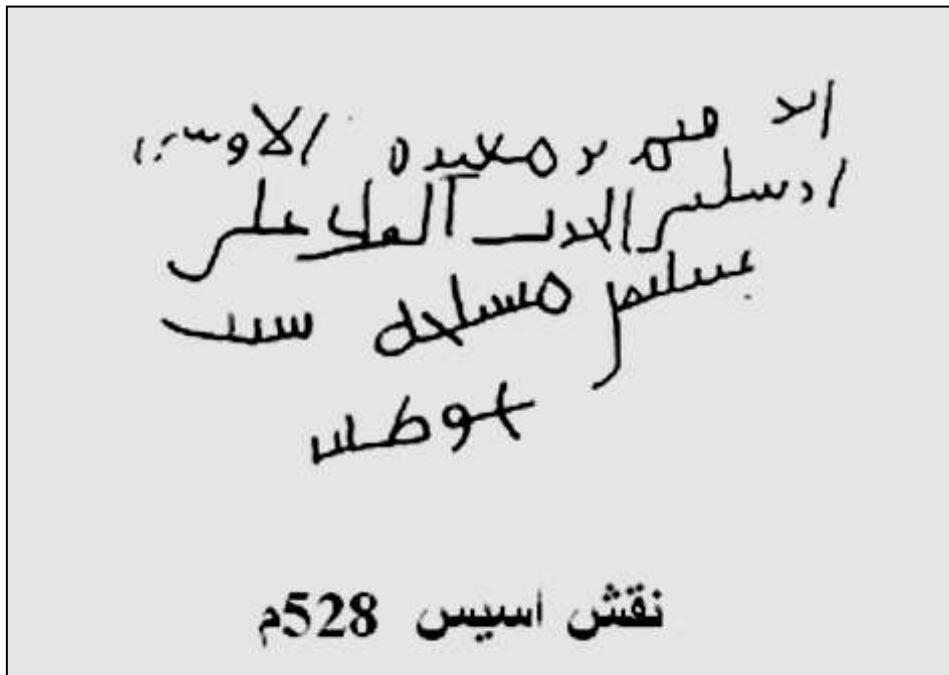 ابرهيم بن مغيره الاوسي
ارسلني الحرث الملك على
سليمن مسلحه سنت
نقش اسيس 528م